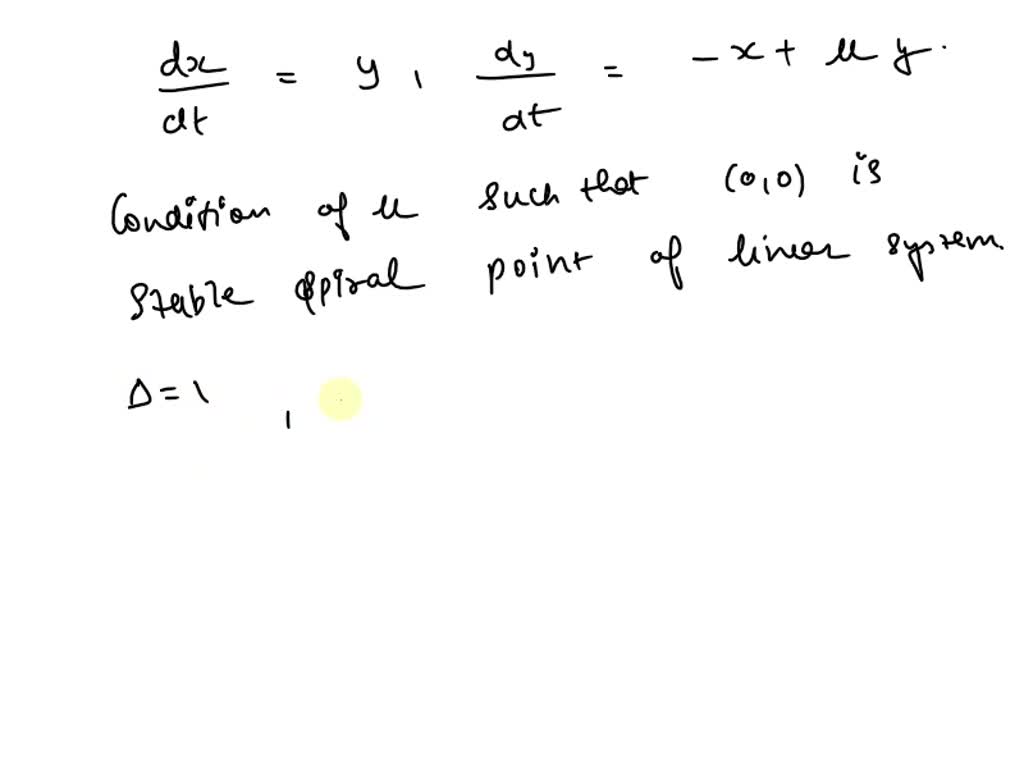 dx/dt = y , dy/dt = -x + μ y.
Condition of μ such that (0,0) is
stable spiral point of linear system.
Δ = 1 ,